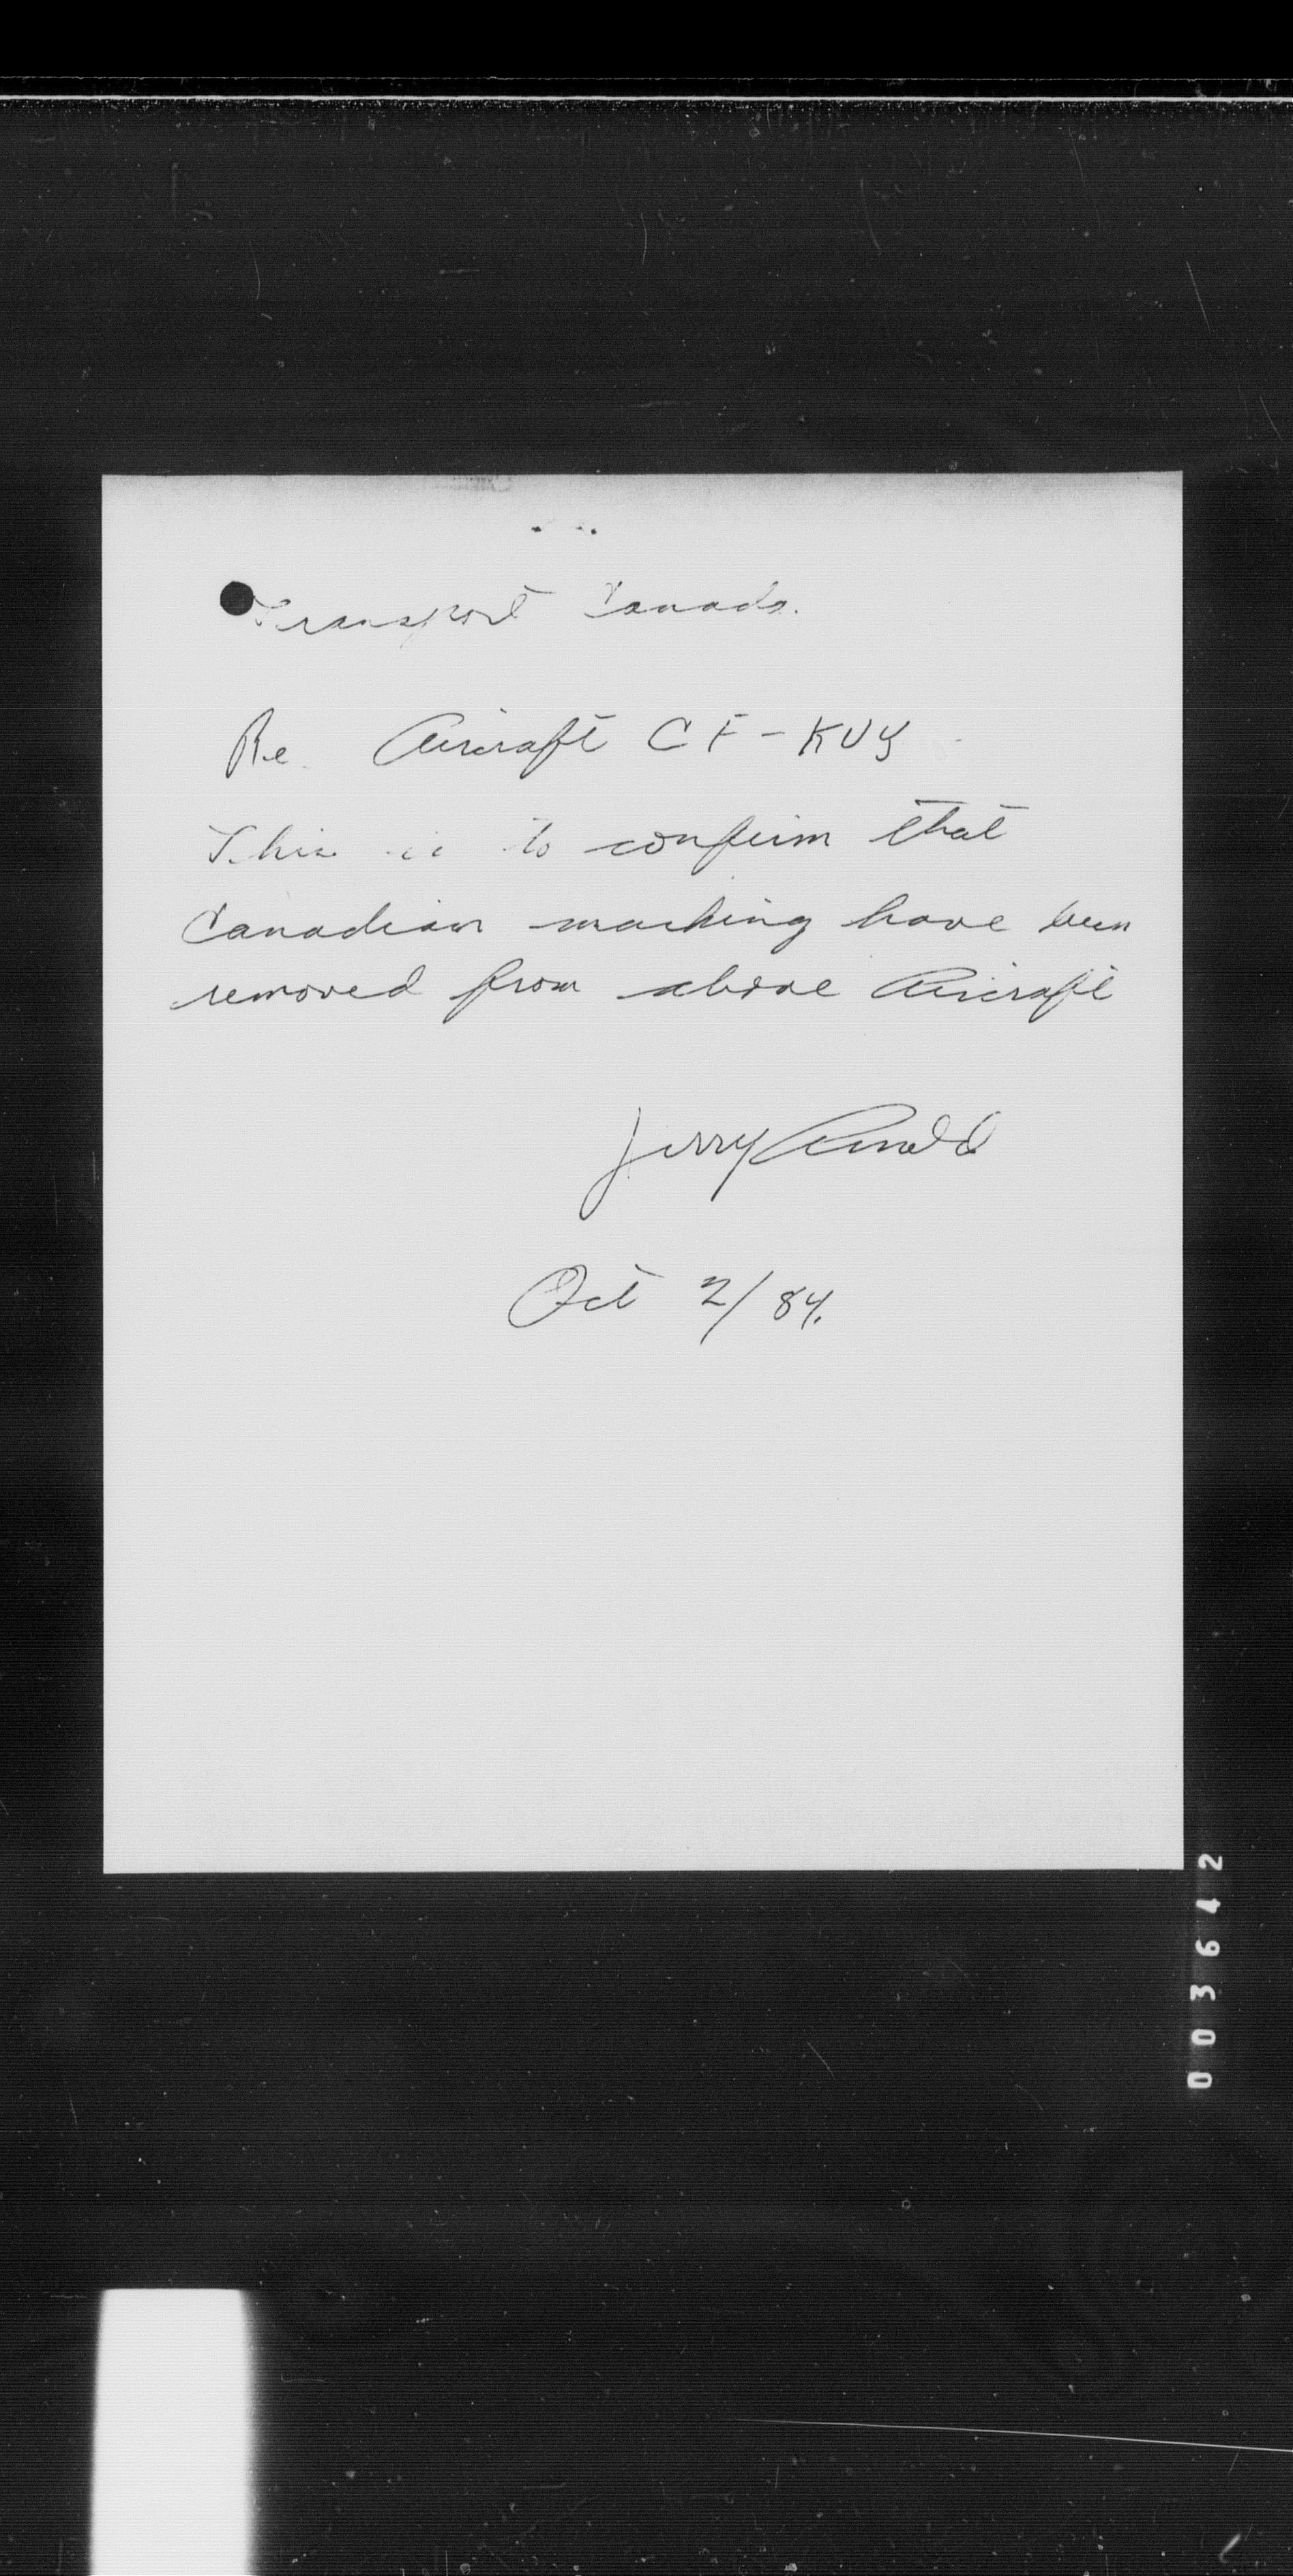 Transport Canada.
Re. Aircraft CF-KUY
This is to confirm that
Canadian marking have been
removed from above Aircraft
Jerry Arnold
Oct 2/84.
003642